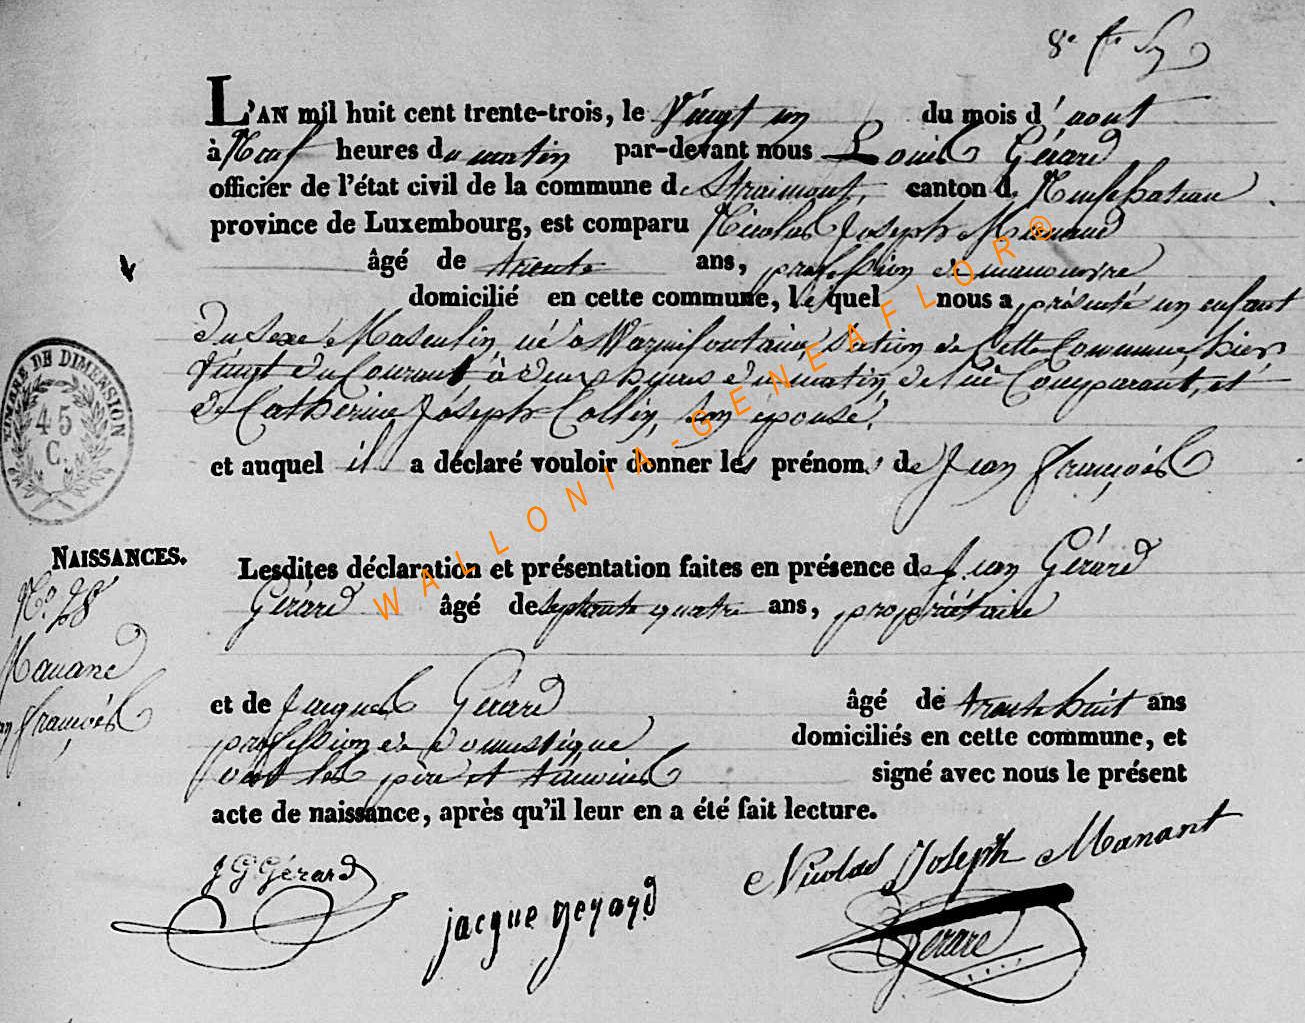 8e
L'AN mil huit cent trente-trois, le Vingt un du mois d'aout
à Neuf heures du matin par-devant nous Louis Gérard
officier de l'état civil de la commune de Straimont, canton de Neufchateau
province de Luxembourg, est comparu Nicolas Joseph Manand
âgé de trente ans, profession de manouvre
domicilié en cette commune, lequel nous a présenté un enfant
du sexe Masculin, né à Warmifontaine, section de cette Commune hier
vingt du Courant, à deux heures du matin, de lui Comparant, et
de Catherine Joseph Collin, son épouse,
et auquel il a déclaré vouloir donner les prénoms de Jean François
Lesdites déclaration et présentation faites en présence de Jean Gérard
Gérard âgé de septante quatre ans, propriétaire
et de Jacques Gérard âgé de trente huit ans
profession de domestique domiciliés en cette commune, et
ont les père et témoins signé avec nous le présent
acte de naissance, après qu'il leur en a été fait lecture.
JGGérard
jacque gerard
Nicolas Joseph Manant
Gerard
TIMBRE DE DIMENSION
45
C.
NAISSANCES.
No. 28
Manand
François
WALLONIA-GENEAFLOR®